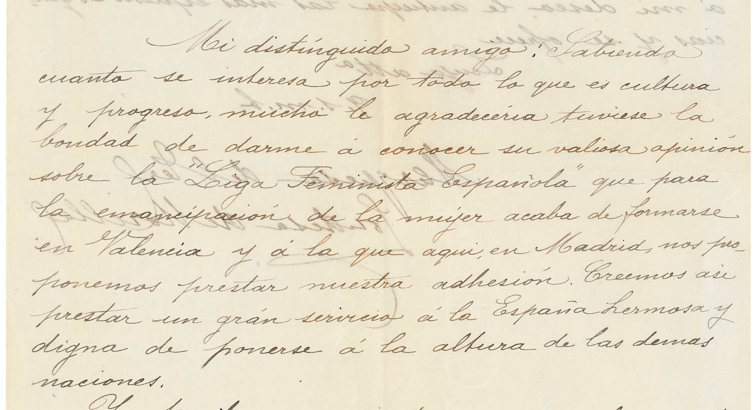 Mi distinguido amigo: Sabiendo
cuanto se interesa por todo lo que es cultura
y progreso, mucho le agradecería tuviese la
bondad de darme á conocer su valiosa opinión
sobre la "Liga Feminista Española" que para
la emancipación de la mujer acaba de formarse
en Valencia y á la que aqui, en Madrid, nos pro-
ponemos prestar nuestra adhesión. Creemos asi
prestar un grán servicio á la España hermosa y
digna de ponerse á la altura de las demas
naciones.